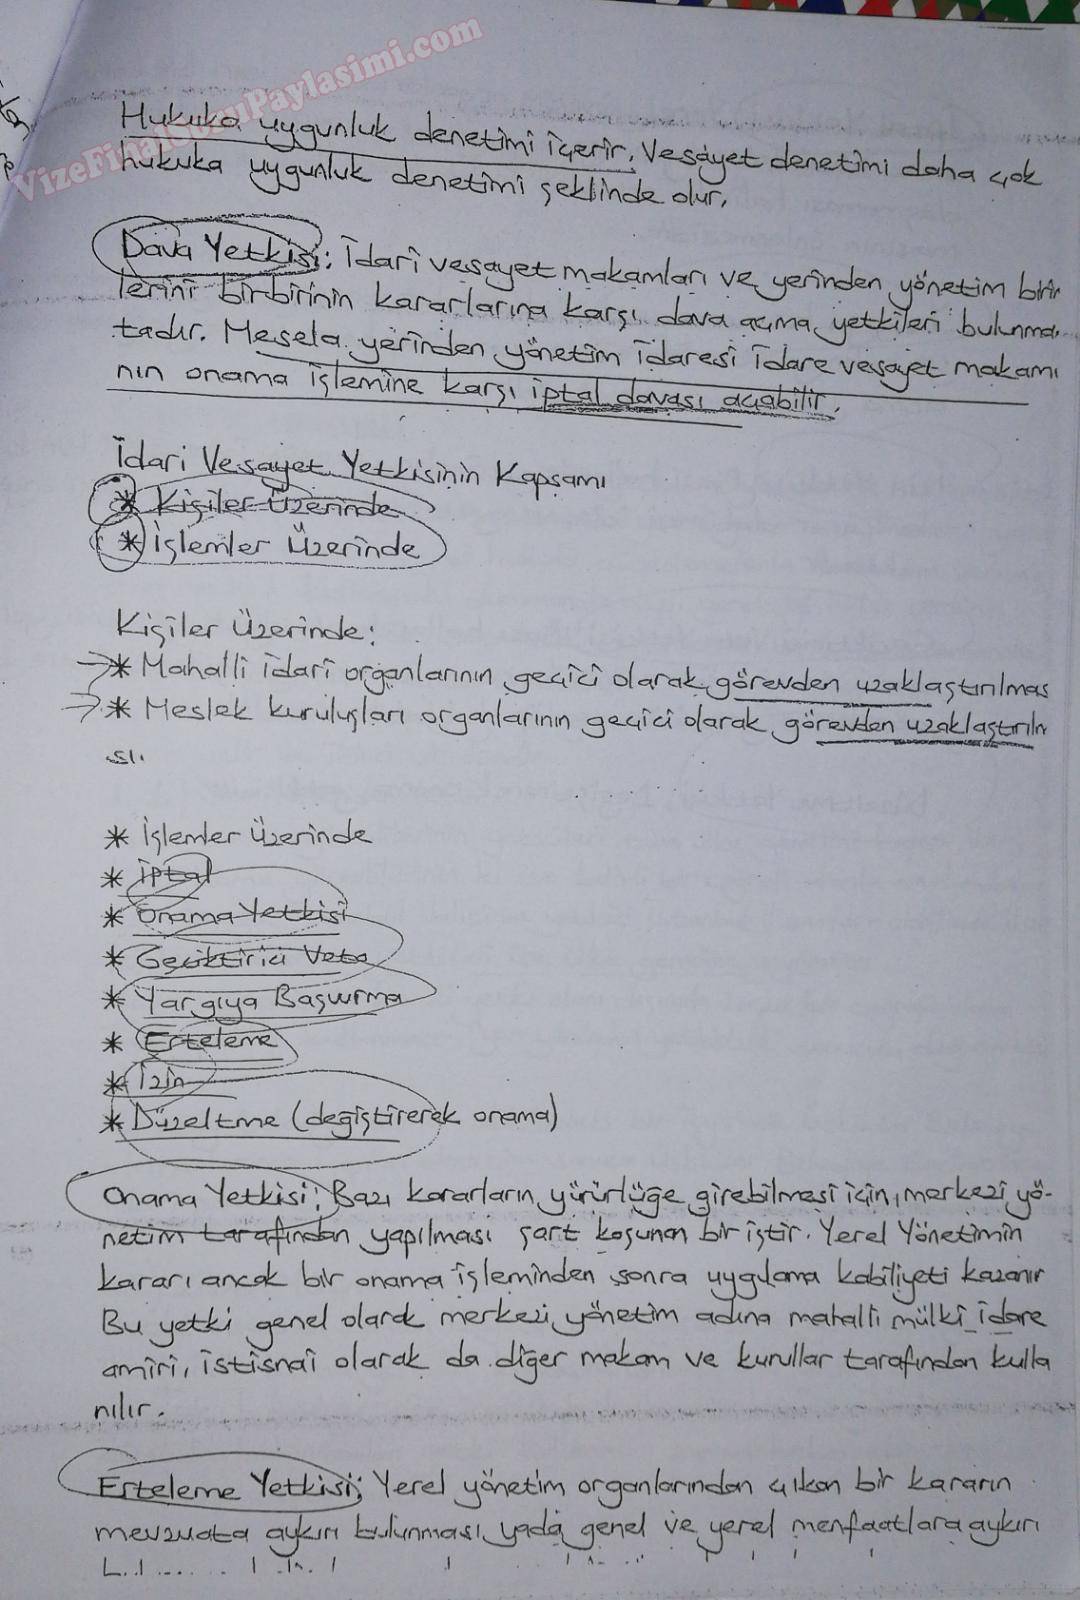 VizeFinalSoruPaylasimi.com
Hukuka uygunluk denetimi içerir. Vesayet denetimi daha çok
hukuka uygunluk denetimi şeklinde olur.
Dava Yetkisi: İdari vesayet makamları ve yerinden yönetim birim
lerini birbirinin kararlarına karşı dava açma yetkileri bulunma
tadır. Mesela yerinden yönetim idaresi idare vesayet makamı
nın onama işlemine karşı iptal davası açabilir.
İdari Vesayet Yetkisinin Kapsamı
* Kişiler Üzerinde
* İşlemler Üzerinde
Kişiler Üzerinde:
→* Mahalli idari organlarının geçici olarak görevden uzaklaştırılmas
→* Meslek kuruluşları organlarının geçici olarak görevden uzaklaştırılm
sı.
* İşlemler Üzerinde
* İptal
* Onama Yetkisi
* Geciktirici Veto
* Yargıya Başvurma
* Erteleme
* İzin
* Düzeltme (değiştirerek onama)
Onama Yetkisi: Bazı kararların yürürlüğe girebilmesi için, merkezi yö-
netim tarafından yapılması şart koşunan bir iştir. Yerel Yönetimin
kararı ancak bir onama işleminden sonra uygulama kabiliyeti kazanır
Bu yetki genel olarak merkezi yönetim adına mahalli mülki idare
amiri, istisnai olarak da diğer makam ve kurullar tarafından kulla
nılır.
Erteleme Yetkisi: Yerel yönetim organlarından çıkan bir kararın
mevzuata aykırı bulunması yada genel ve yerel menfaatlara aykırı